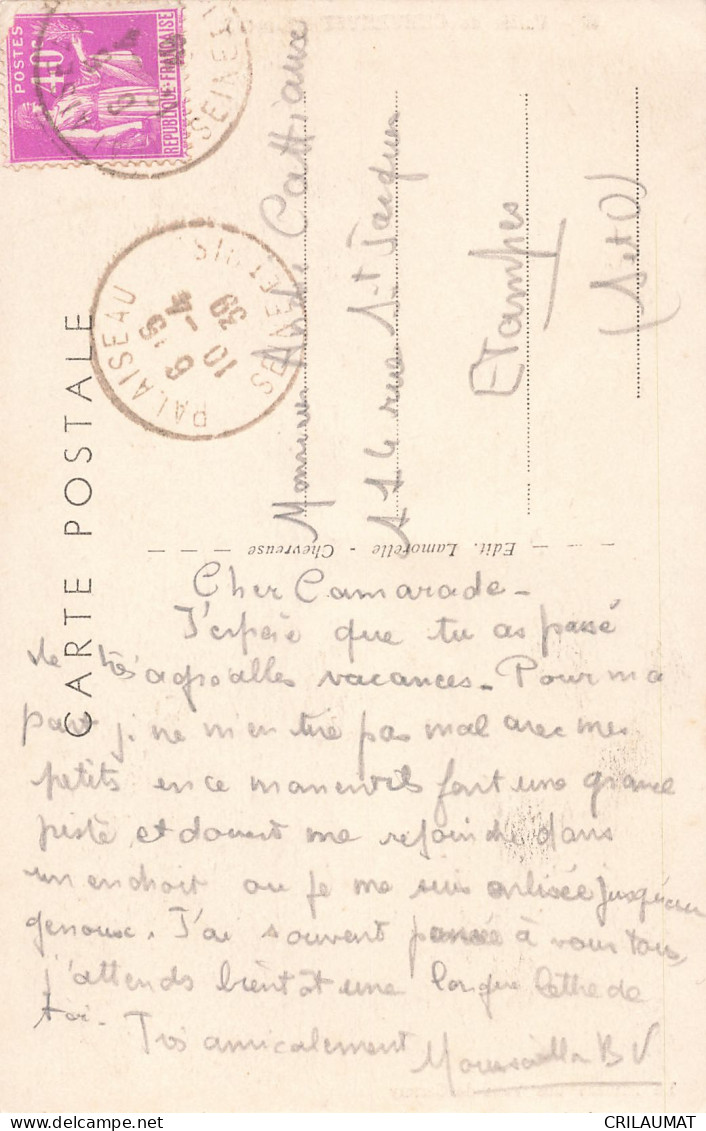 POSTES
40c
REPUBLIQUE FRANÇAISE
SEINE
PALAISEAU
6 15
10 - 4
39
SEINE ET OIS
CARTE POSTALE
Monsieur André Cattiaux
114 rue St Jacques
Etampes
(S et O)
Edit. Lamorelle - Chevreuse
Cher Camarade -
J'espère que tu as passé
de très agréables vacances - Pour ma
part je ne m'en tire pas mal avec mes
petits en ce moment ils font une grande
piste et doivent me rejoindre dans
un endroit ou je me suis enlisée jusqu'aux
genoux. J'ai souvent pensé à vous tous,
j'attends bientôt une longue lettre de
toi.
Très amicalement
BV
CRILAUMAT